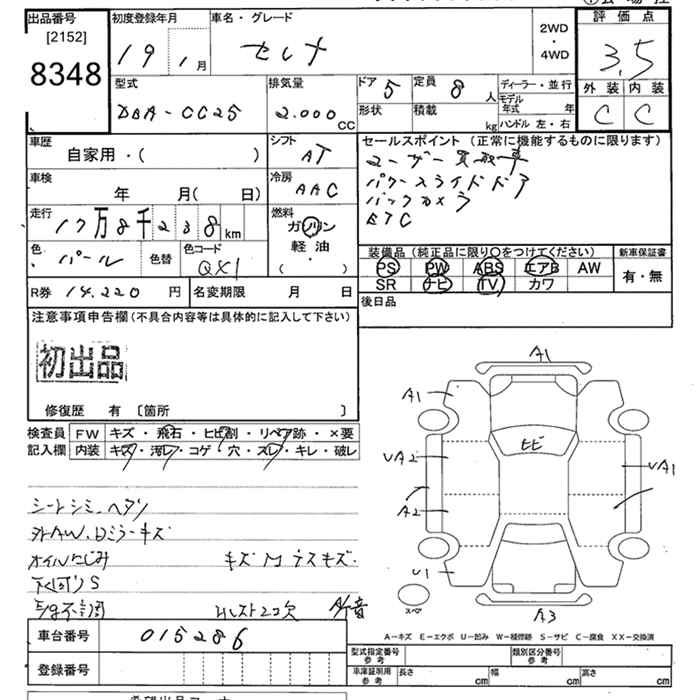 出品番号 初度登録年月 車名・グレード 2WD・4WD 評価点
[2152]
8348 19年1月 セレナ 3.5
型式 排気量 ドア 5 定員 8人 ディーラー・並行 外装 内装
DBA-CC25 2.000cc 形状 積載 kg モデル年式 年 C C
ハンドル 左・右
車歴 シフト セールスポイント (正常に機能するものに限ります)
自家用・( ) AT ユーザー買取車
車検 冷房 パワースライドドア
年 月( 日) AAC バックカメラ
走行 燃料 ETC
17万8千238km ガソリン
色 パール 色替 色コード QX1 軽油
・( )
装備品(純正品に限り○をつけてください) 新車保証書
PS PW ABS エアB AW 有・無
SR ナビ TV カワ
R券 14.220円 名変期限 月 日 後日品
注意事項申告欄(不具合内容等は具体的に記入して下さい)
初出品
修復歴 有 〔箇所 〕
検査員 FW キズ・飛石・ヒビ割・リペア跡・×要
記入欄 内装 キズ・汚レ・コゲ・穴・スレ・キレ・破レ
A1
A1
ヒビ
UA2 UA1
A2
U1
スペ
A3
シートシミ、ヘタリ
外AW、Dミラーキズ
オイルにじみ キズM ラスキズ
下廻りS
A-キズ E-エクボ U-凹み W-補修跡 S-サビ C-腐食 XX-交換済
車台番号 015286
型式指定番号 参考 類別区分番号 参考
登録番号
車庫証明用 参考 長さ cm 幅 cm 高さ cm